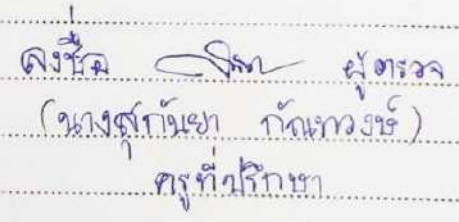 ลงชื่อ ผู้ตรวจ
(นางสุกันยา กัณหวงษ์)
ครูที่ปรึกษา